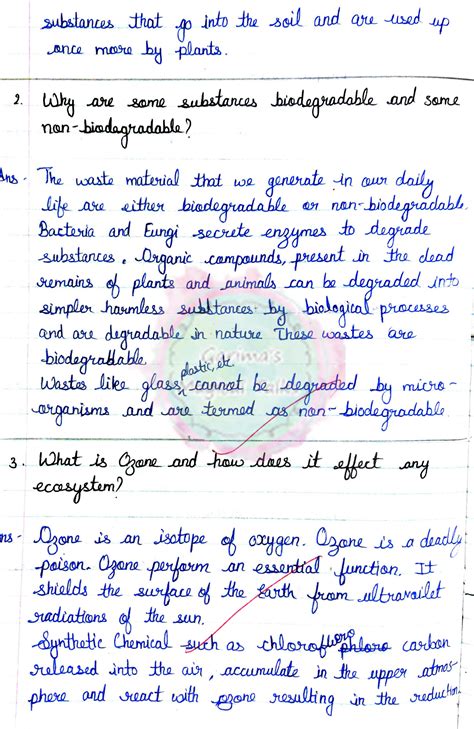 substances that go into the soil and are used up
once more by plants.
2. Why are some substances biodegradable and some
non-biodegradable?
Ans - The waste material that we generate in our daily
life are either biodegradable or non-biodegradable.
Bacteria and Fungi secrete enzymes to degrade
substances. Organic compounds, present in the dead
remains of plants and animals can be degraded into
simpler harmless substances by biological processes
and are degradable in nature These wastes are
biodegradable.
Wastes like glass, plastic, etc cannot be degraded by micro-
organisms and are termed as non-biodegradable.
3. What is Ozone and how does it effect any
ecosystem?
ns - Ozone is an isotope of oxygen. Ozone is a deadly
poison. Ozone perform an essential function. It
shields the surface of the Earth from ultravailet
radiations of the sun.
Synthetic Chemical such as chlorofluoro carbon
released into the air, accumulate in the upper atmos-
phere and react with ozone resulting in the reduction